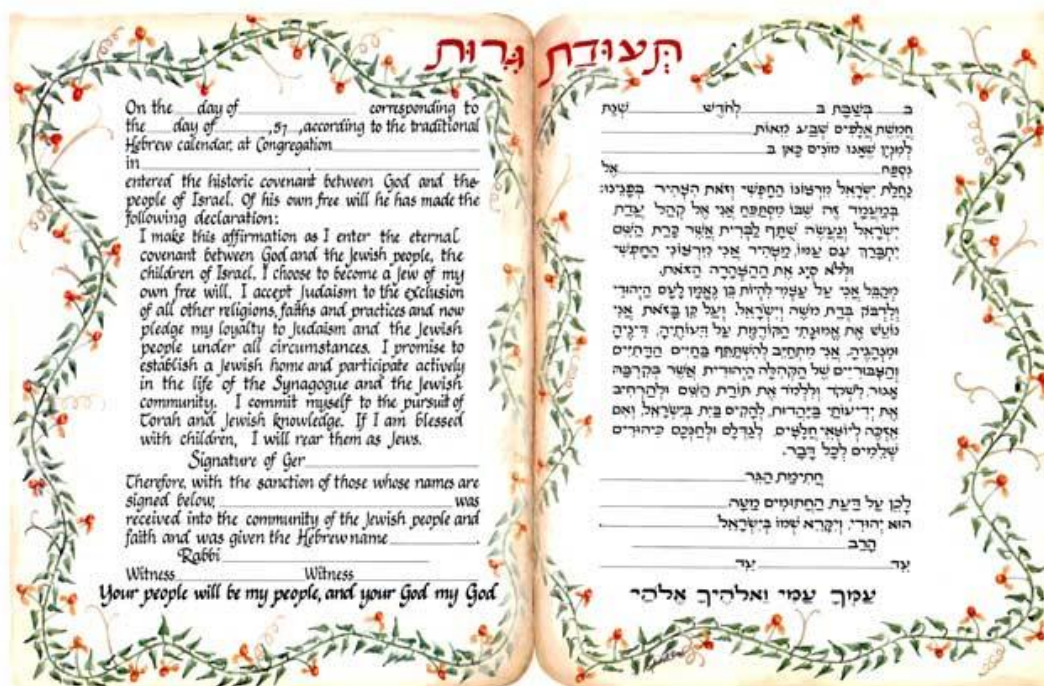 תְּעוּדַת גֵּרוּת
On the ___ day of ___ corresponding to
the ___ day of ___, 57__, according to the traditional
Hebrew calendar, at Congregation ___
in ___,
entered the historic covenant between God and the
people of Israel. Of his own free will he has made the
following declaration:
I make this affirmation as I enter the eternal
covenant between God and the Jewish people, the
children of Israel. I choose to become a Jew of my
own free will. I accept Judaism to the exclusion
of all other religions, faiths and practices and now
pledge my loyalty to Judaism and the Jewish
people under all circumstances. I promise to
establish a Jewish home and participate actively
in the life of the Synagogue and the Jewish
community. I commit myself to the pursuit of
Torah and Jewish knowledge. If I am blessed
with children, I will rear them as Jews.
Signature of Ger ___
Therefore, with the sanction of those whose names are
signed below, ___ was
received into the community of the Jewish people and
faith and was given the Hebrew name ___.
Rabbi ___
Witness ___ Witness ___
Your people will be my people, and your God my God
ב___ בְּשַׁבָּת ב___ לְחֹדֶשׁ ___ שְׁנַת
חֲמֵשֶׁת אֲלָפִים שְׁבַע מֵאוֹת ___
לְמִנְיַן שֶׁאָנוּ מוֹנִים כָּאן ב___
נִסְפַּח ___ אֶל
נַחֲלַת יִשְׂרָאֵל מֵרְצוֹנוֹ הַחָפְשִׁי וְזֹאת הִצְהִיר בְּפָנֵינוּ:
בְּמַעֲמָד זֶה שֶׁבּוֹ מִסְתַּפֵּחַ אֲנִי אֶל קְהַל עֲדַת
יִשְׂרָאֵל וְנַעֲשֶׂה שֻׁתָּף לַבְּרִית אֲשֶׁר כָּרַת הַשֵּׁם
יִתְבָּרַךְ עִם עַמּוֹ, מַצְהִיר אֲנִי מֵרְצוֹנִי הַחָפְשִׁי
וּלְלֹא סְיָג אֶת הַהַצְהָרָה הַזֹּאת.
מְקַבֵּל אֲנִי עַל עַצְמִי לִהְיוֹת בֵּן נֶאֱמָן לָעָם הַיְהוּדִי
וְלִדְבֹּק בְּדַת מֹשֶׁה וְיִשְׂרָאֵל, וְעַל כֵּן בָּזֹאת אֲנִי
נוֹטֵשׁ אֶת אֱמוּנָתִי הַקּוֹדֶמֶת עַל דֵּעוֹתֶיהָ, דִּינֶיהָ
וּמִנְהָגֶיהָ, אֲנִי מִתְחַיֵּב לְהִשְׁתַּתֵּף בַּחַיִּים הַדָּתִיִּים
וְהַצִּבּוּרִיִּים שֶׁל הַקְּהִלָּה הַיְהוּדִית אֲשֶׁר בְּקִרְבָּהּ
אָגוּר, לִשְׁקֹד וְלִלְמֹד אֶת תּוֹרַת הַשֵּׁם וּלְהַרְחִיב
אֶת יְדִיעוֹתַי בַּיַּהֲדוּת, לְהָקִים בַּיִת בְּיִשְׂרָאֵל, וְאִם
אֶזְכֶּה לְיוֹצְאֵי חֲלָצַיִם, לְגַדְּלָם וּלְחַנְּכָם כִּיהוּדִים
שְׁלֵמִים לְכָל דָּבָר.
חֲתִימַת הַגֵּר ___
לָכֵן עַל דַּעַת הַחֲתוּמִים מַטָּה, ___
הוּא יְהוּדִי, וְיִקָּרֵא שְׁמוֹ בְּיִשְׂרָאֵל ___
הָרַב ___
עֵד ___ עֵד ___
עַמֵּךְ עַמִּי וֵאלֹהַיִךְ אֱלֹהָי